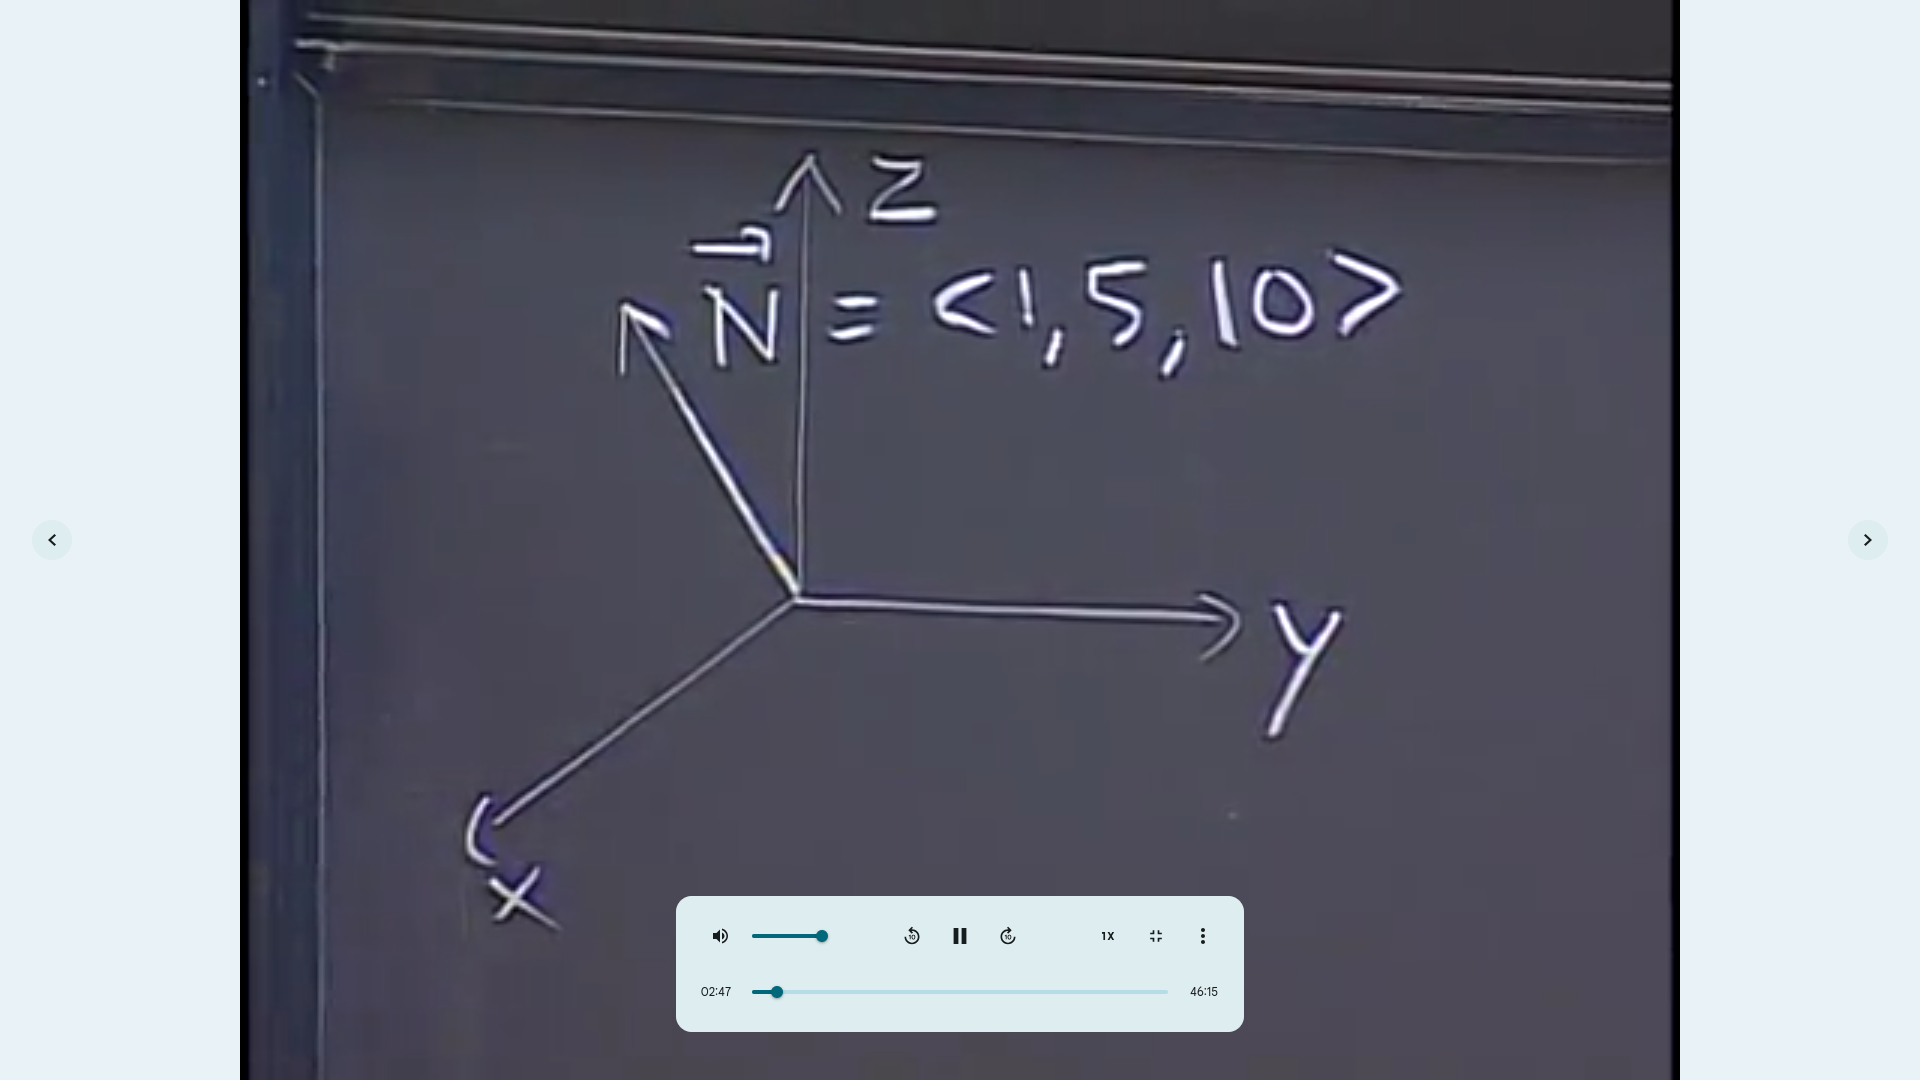 z
N⃗ = <1,5,10>
y
x
1X
02:47
46:15